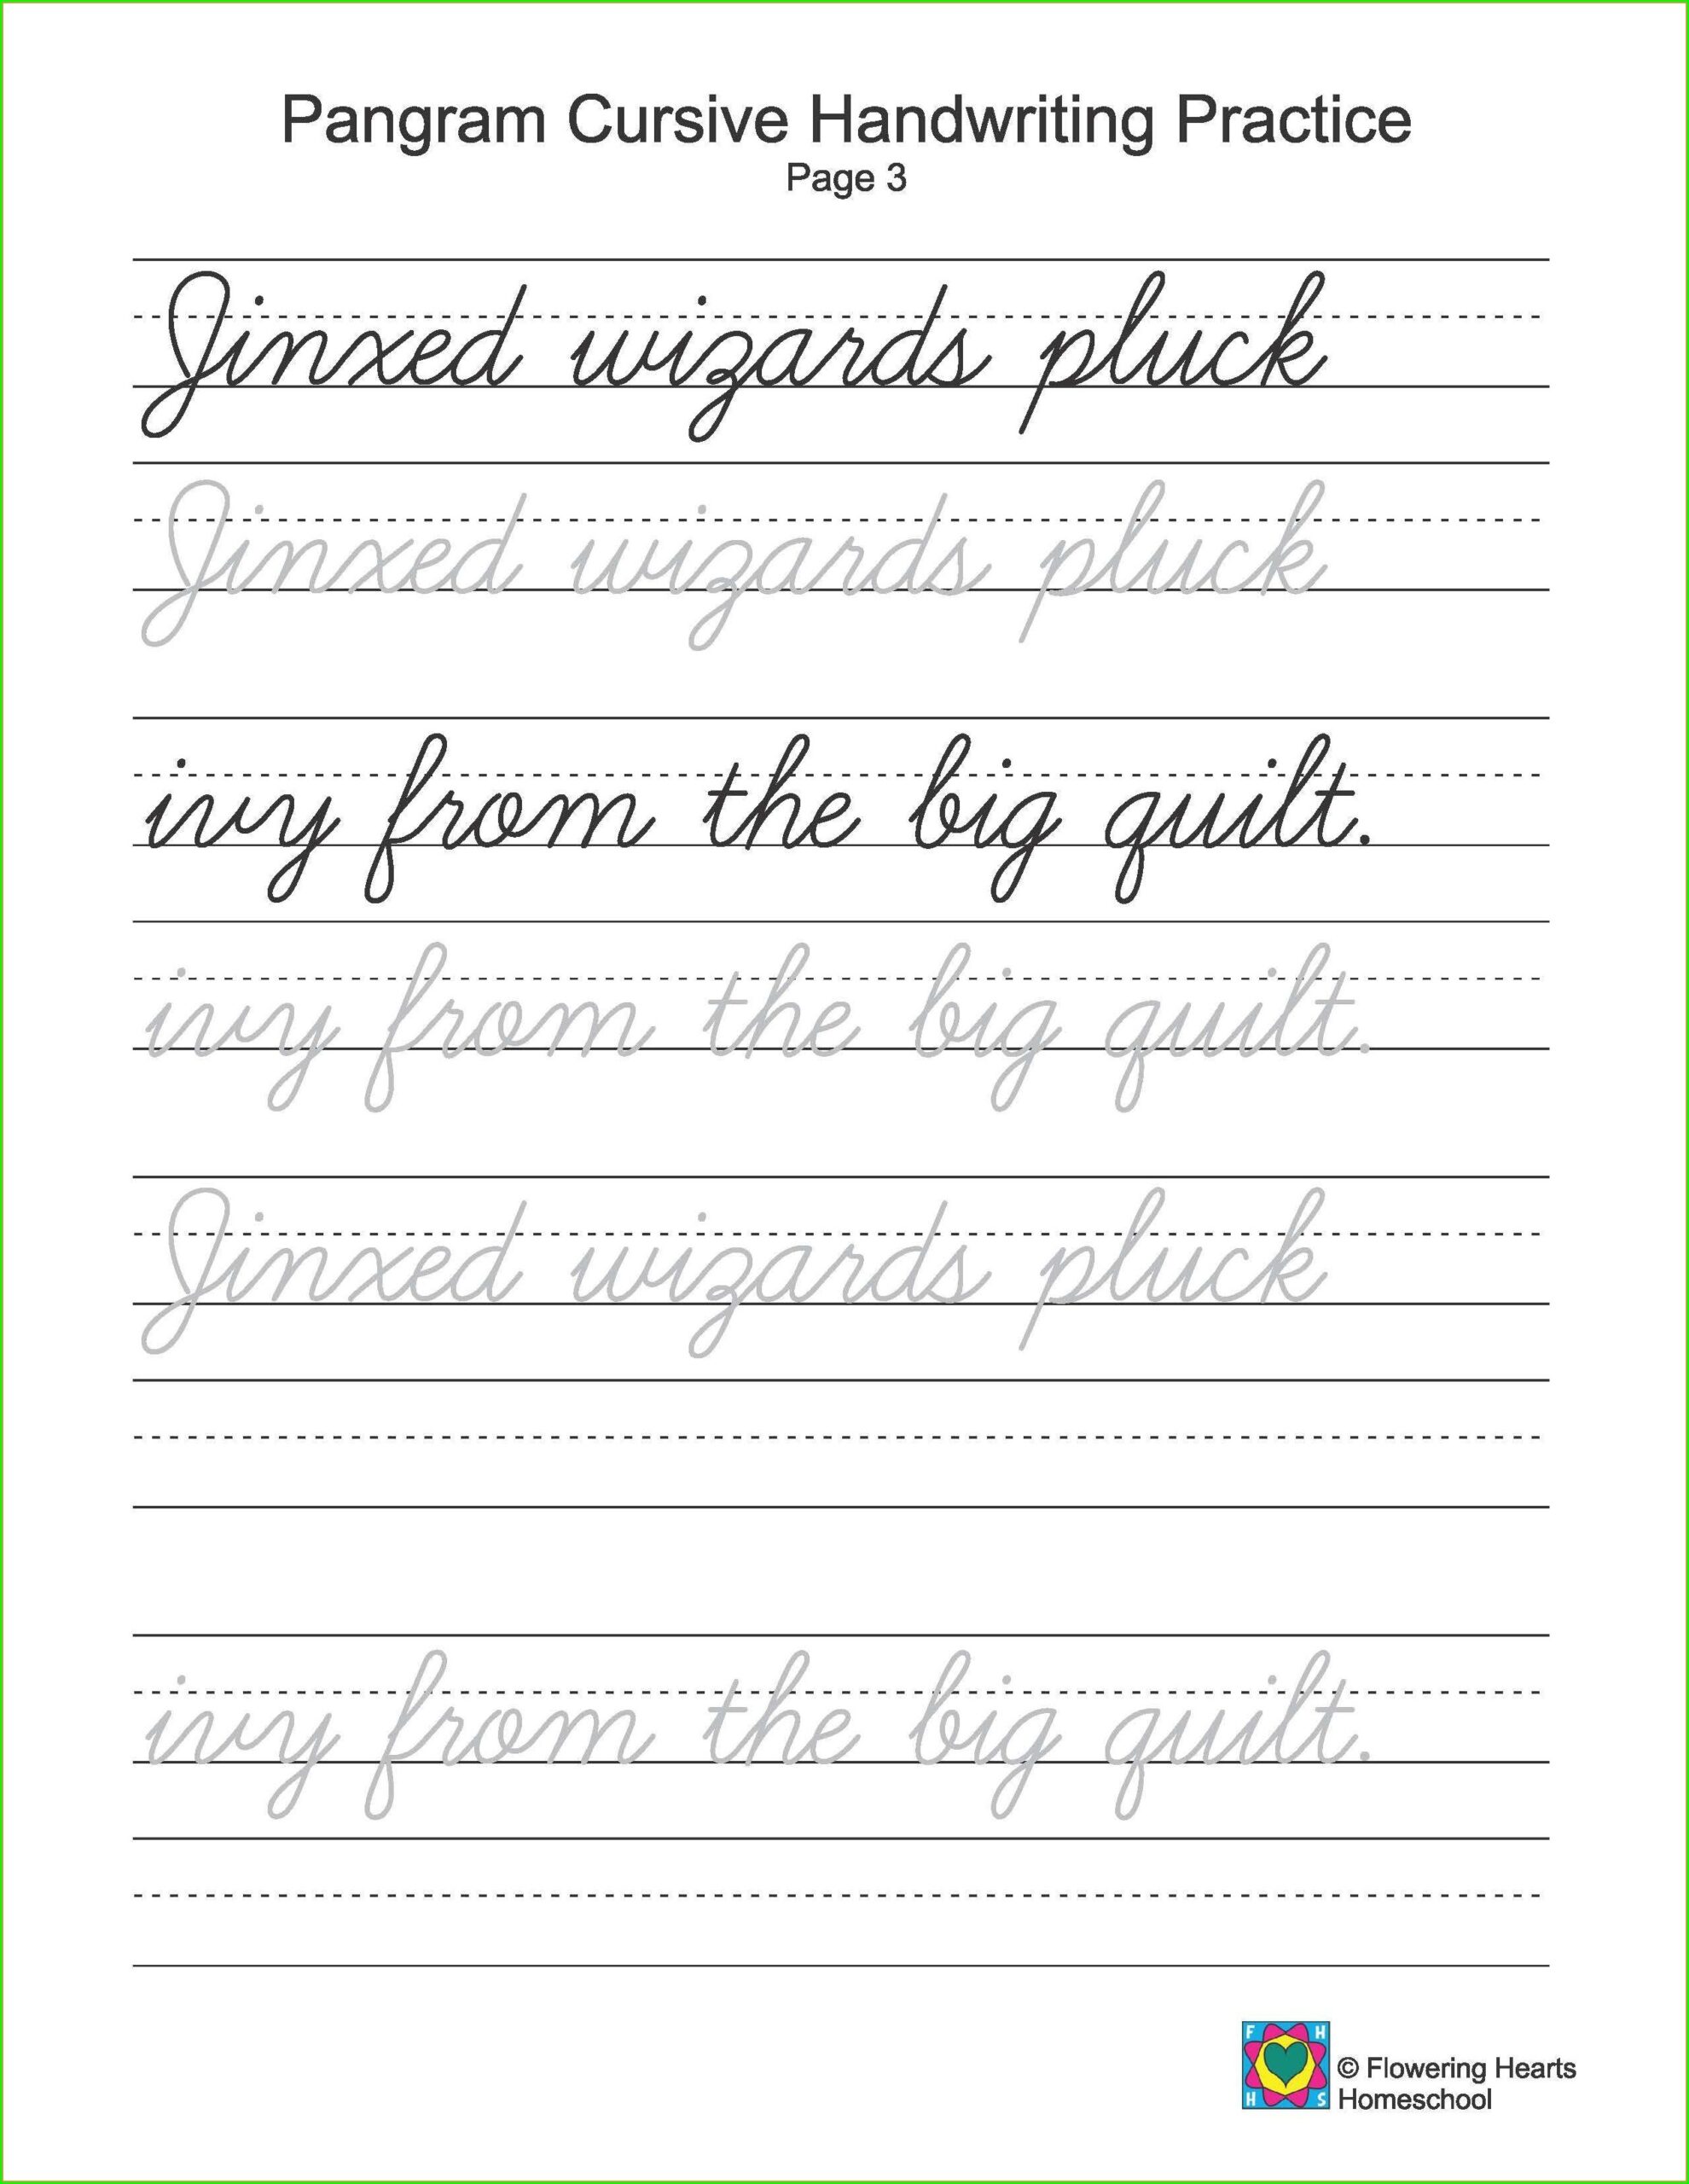 Pangram Cursive Handwriting Practice
Page 3
Jinxed wizards pluck
Jinxed wizards pluck
ivy from the big quilt.
ivy from the big quilt.
Jinxed wizards pluck
ivy from the big quilt.
F H
H S
© Flowering Hearts
Homeschool